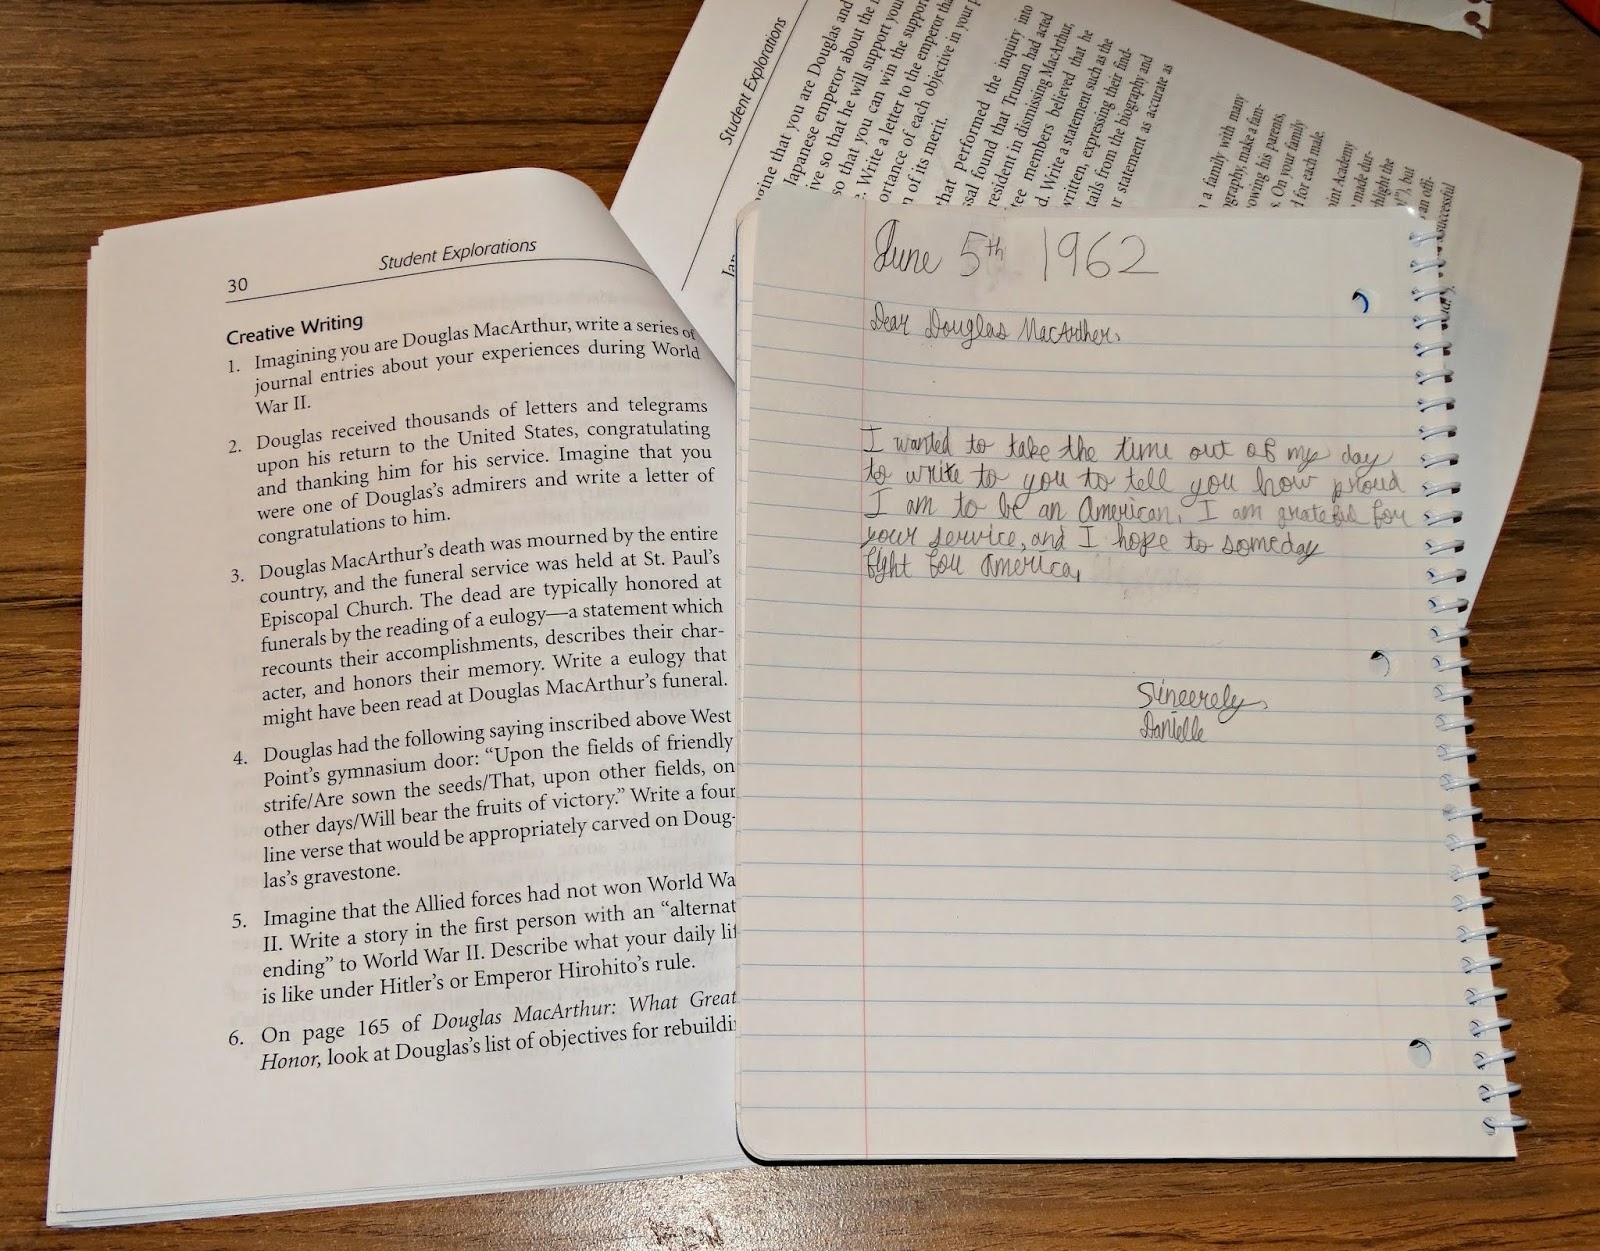 30
Student Explorations
Creative Writing
1. Imagining you are Douglas MacArthur, write a series of
journal entries about your experiences during World
War II.
2. Douglas received thousands of letters and telegrams
upon his return to the United States, congratulating
and thanking him for his service. Imagine that you
were one of Douglas's admirers and write a letter of
congratulations to him.
3. Douglas MacArthur's death was mourned by the entire
country, and the funeral service was held at St. Paul's
Episcopal Church. The dead are typically honored at
funerals by the reading of a eulogy—a statement which
recounts their accomplishments, describes their char-
acter, and honors their memory. Write a eulogy that
might have been read at Douglas MacArthur's funeral.
4. Douglas had the following saying inscribed above West
Point's gymnasium door: “Upon the fields of friendly
strife/Are sown the seeds/That, upon other fields, on
other days/Will bear the fruits of victory.” Write a four
line verse that would be appropriately carved on Doug-
las's gravestone.
5. Imagine that the Allied forces had not won World Wa
II. Write a story in the first person with an “alternat
ending” to World War II. Describe what your daily lif
is like under Hitler's or Emperor Hirohito's rule.
6. On page 165 of Douglas MacArthur: What Great
Honor, look at Douglas's list of objectives for rebuildi
Student Explorations
gine that you are Douglas and
Japanese emperor about the
ive so that he will support your
so that you can win the support
e. Write a letter to the emperor tha
ortance of each objective in your p
n of its merit.
that performed the inquiry into
ssal found that Truman had acted
resident in dismissing MacArthur,
tee members believed that he
d. Write a statement such as the
written, expressing their find-
tails from the biography and
ur statement as accurate as
n a family with many
ography, make a fam-
owing his parents,
s. On your family
d for each male.
oint Academy
made dur-
ghlight the
but
an offi-
successful
Jap
June 5th 1962
Dear Douglas MacArther,
I wanted to take the time out of my day
to write to you to tell you how proud
I am to be an American. I am grateful for
your service, and I hope to someday
fight for America.
Sincerely,
Danielle